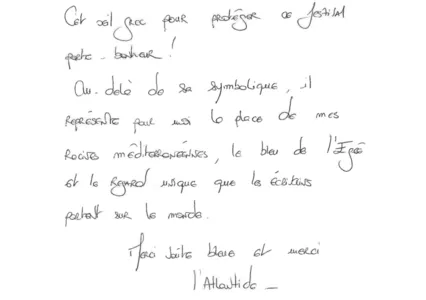 Cet œil grec pour protéger ce festival
porte-bonheur !
Au-delà de sa symbolique, il
représente pour moi la place de mes
racines méditerranéennes, le bleu de l'Égée
et le regard unique que les écrivains
portent sur le monde.
Merci boîte bleue et merci
l'Atlantide _